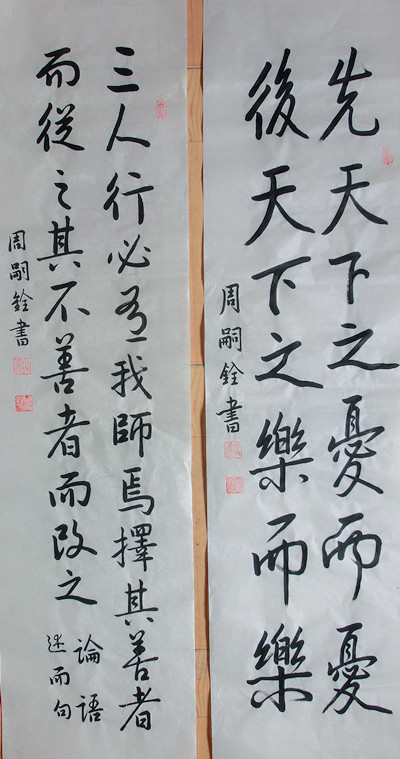 先天下之憂而憂
後天下之樂而樂
周嗣銓書
三人行必有我師焉擇其善者
而從之其不善者而改之
論語
述而句
周嗣銓書